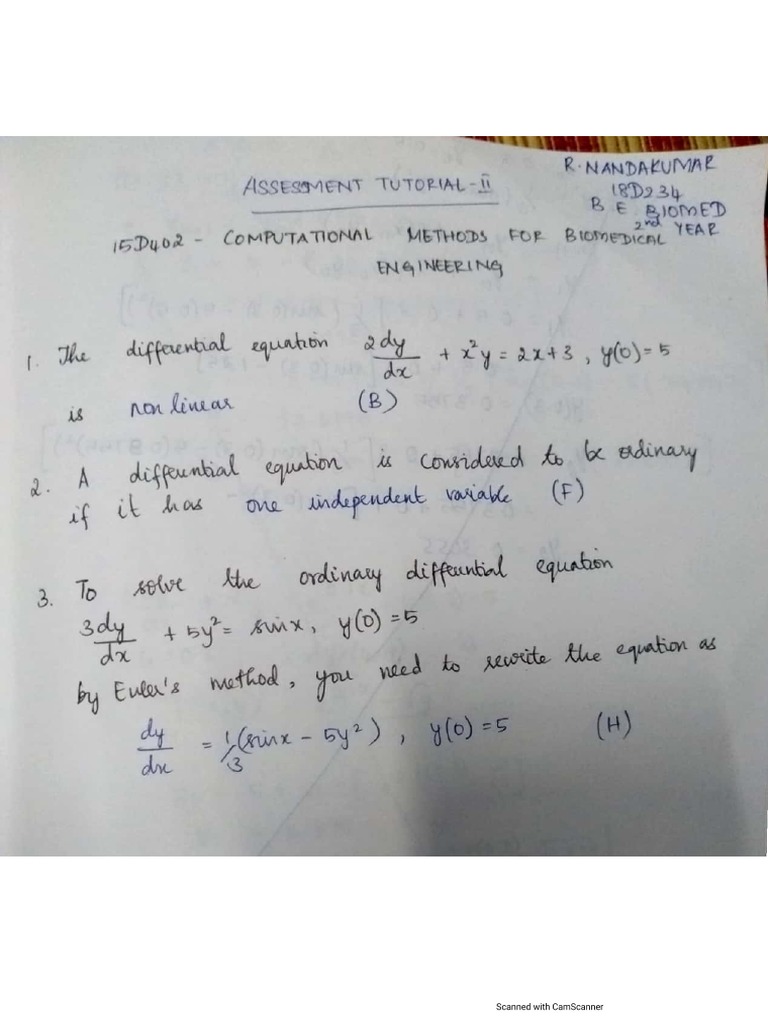 ASSESSMENT TUTORIAL-II
R. NANDAKUMAR
18D234
B.E BIOMED
2nd YEAR
15D402 - COMPUTATIONAL METHODS FOR BIOMEDICAL
ENGINEERING
1. The differential equation 2dy/dx + x²y = 2x+3, y(0)=5
is non linear (B)
2. A differential equation is considered to be ordinary
if it has one independent variable (F)
3. To solve the ordinary differential equation
3dy/dx + 5y² = sinx, y(0)=5
by Euler's method, you need to rewrite the equation as
dy/dx = 1/3(sinx - 5y²), y(0)=5 (H)
Scanned with CamScanner